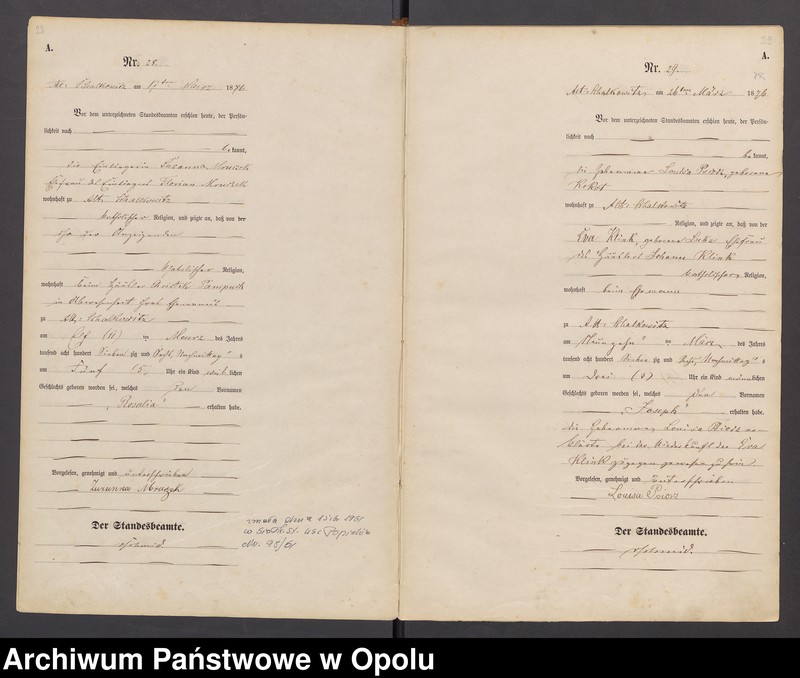 A.
Nr. 28.
Alt-Schalkowitz am 1876
Vor dem unterzeichneten Standesbeamten erschien heute, der Persön-
lichkeit nach
be kannt,
die Einliegerin Susanna
Ehefrau des Einliegers Florian
wohnhaft zu Alt-Schalkowitz
katholischer Religion, und zeigte an, daß von der
der Anzeigenden
katholischer Religion,
wohnhaft beim Häusler Pampuch
in
zu Alt-Schalkowitz
am Elf (11) ten Maerz des Jahres
tausend acht hundert sieben zig und sechs, Nachmittags
um Fünf (5) Uhr ein Kind weib lichen
Geschlechts geboren worden sei, welches den Vornamen
„Rosalia“ erhalten habe.
Vorgelesen, genehmigt und unterschrieben
Zuzanna
Der Standesbeamte.
Schmid.
zmarła dnia 1961
w USC Popielów
Nr. 98/61
A.
Nr. 29.
Alt-Schalkowitz am 26ten März 1876
Vor dem unterzeichneten Standesbeamten erschien heute, der Persön-
lichkeit nach
be kannt,
die Hebamme Louisa geborene
Kokot
wohnhaft zu Alt-Schalkowitz
Religion, und zeigte an, daß von der
Eva Klink, geborene Ehefrau
des Häuslers Johann Klink
katholischer Religion,
wohnhaft beim Ehemann
zu Alt-Schalkowitz
am ten März des Jahres
tausend acht hundert sieben zig und sechs, Nachmittags
um Drei (3) Uhr ein Kind männ lichen
Geschlechts geboren worden sei, welches den Vornamen
„Joseph“ erhalten habe.
die Hebamme Louisa er-
klärte bei der Niederkunft der Eva
Klink zugegen gewesen zu sein
Vorgelesen, genehmigt und unterschrieben
Louisa
Der Standesbeamte.
Schmid.
Archiwum Państwowe w Opolu